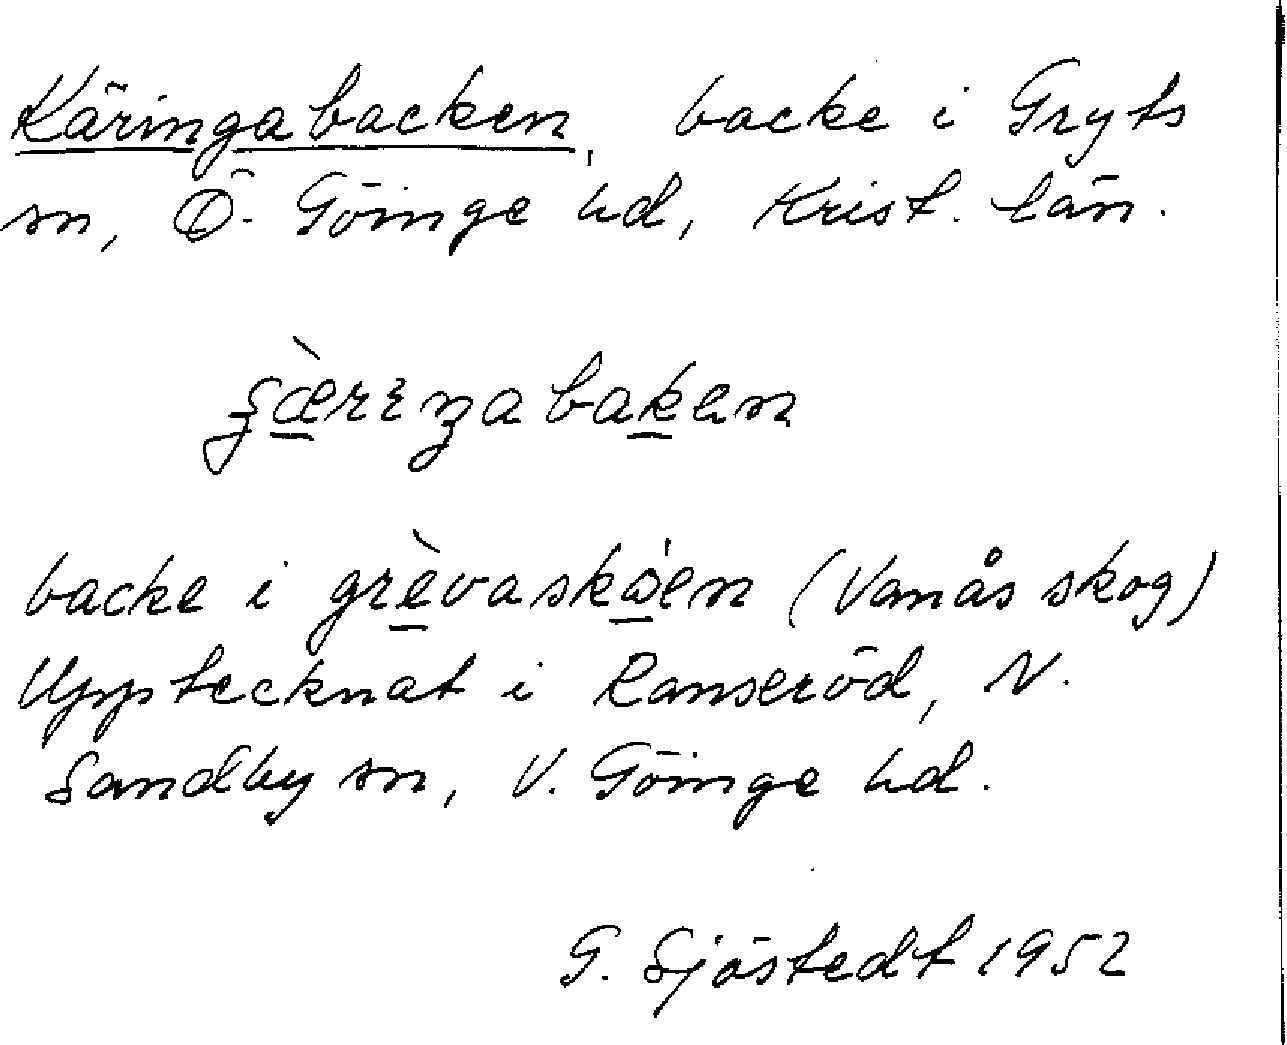 Käringabacken, backe i Gryts
sn, Ö. Göinge hd, Krist. län.
backe i grèvaskɷ́en (Vanås skog)
Upptecknat i Ranseröd, N.
Sandby sn, V. Göinge hd.
G. Sjöstedt 1952